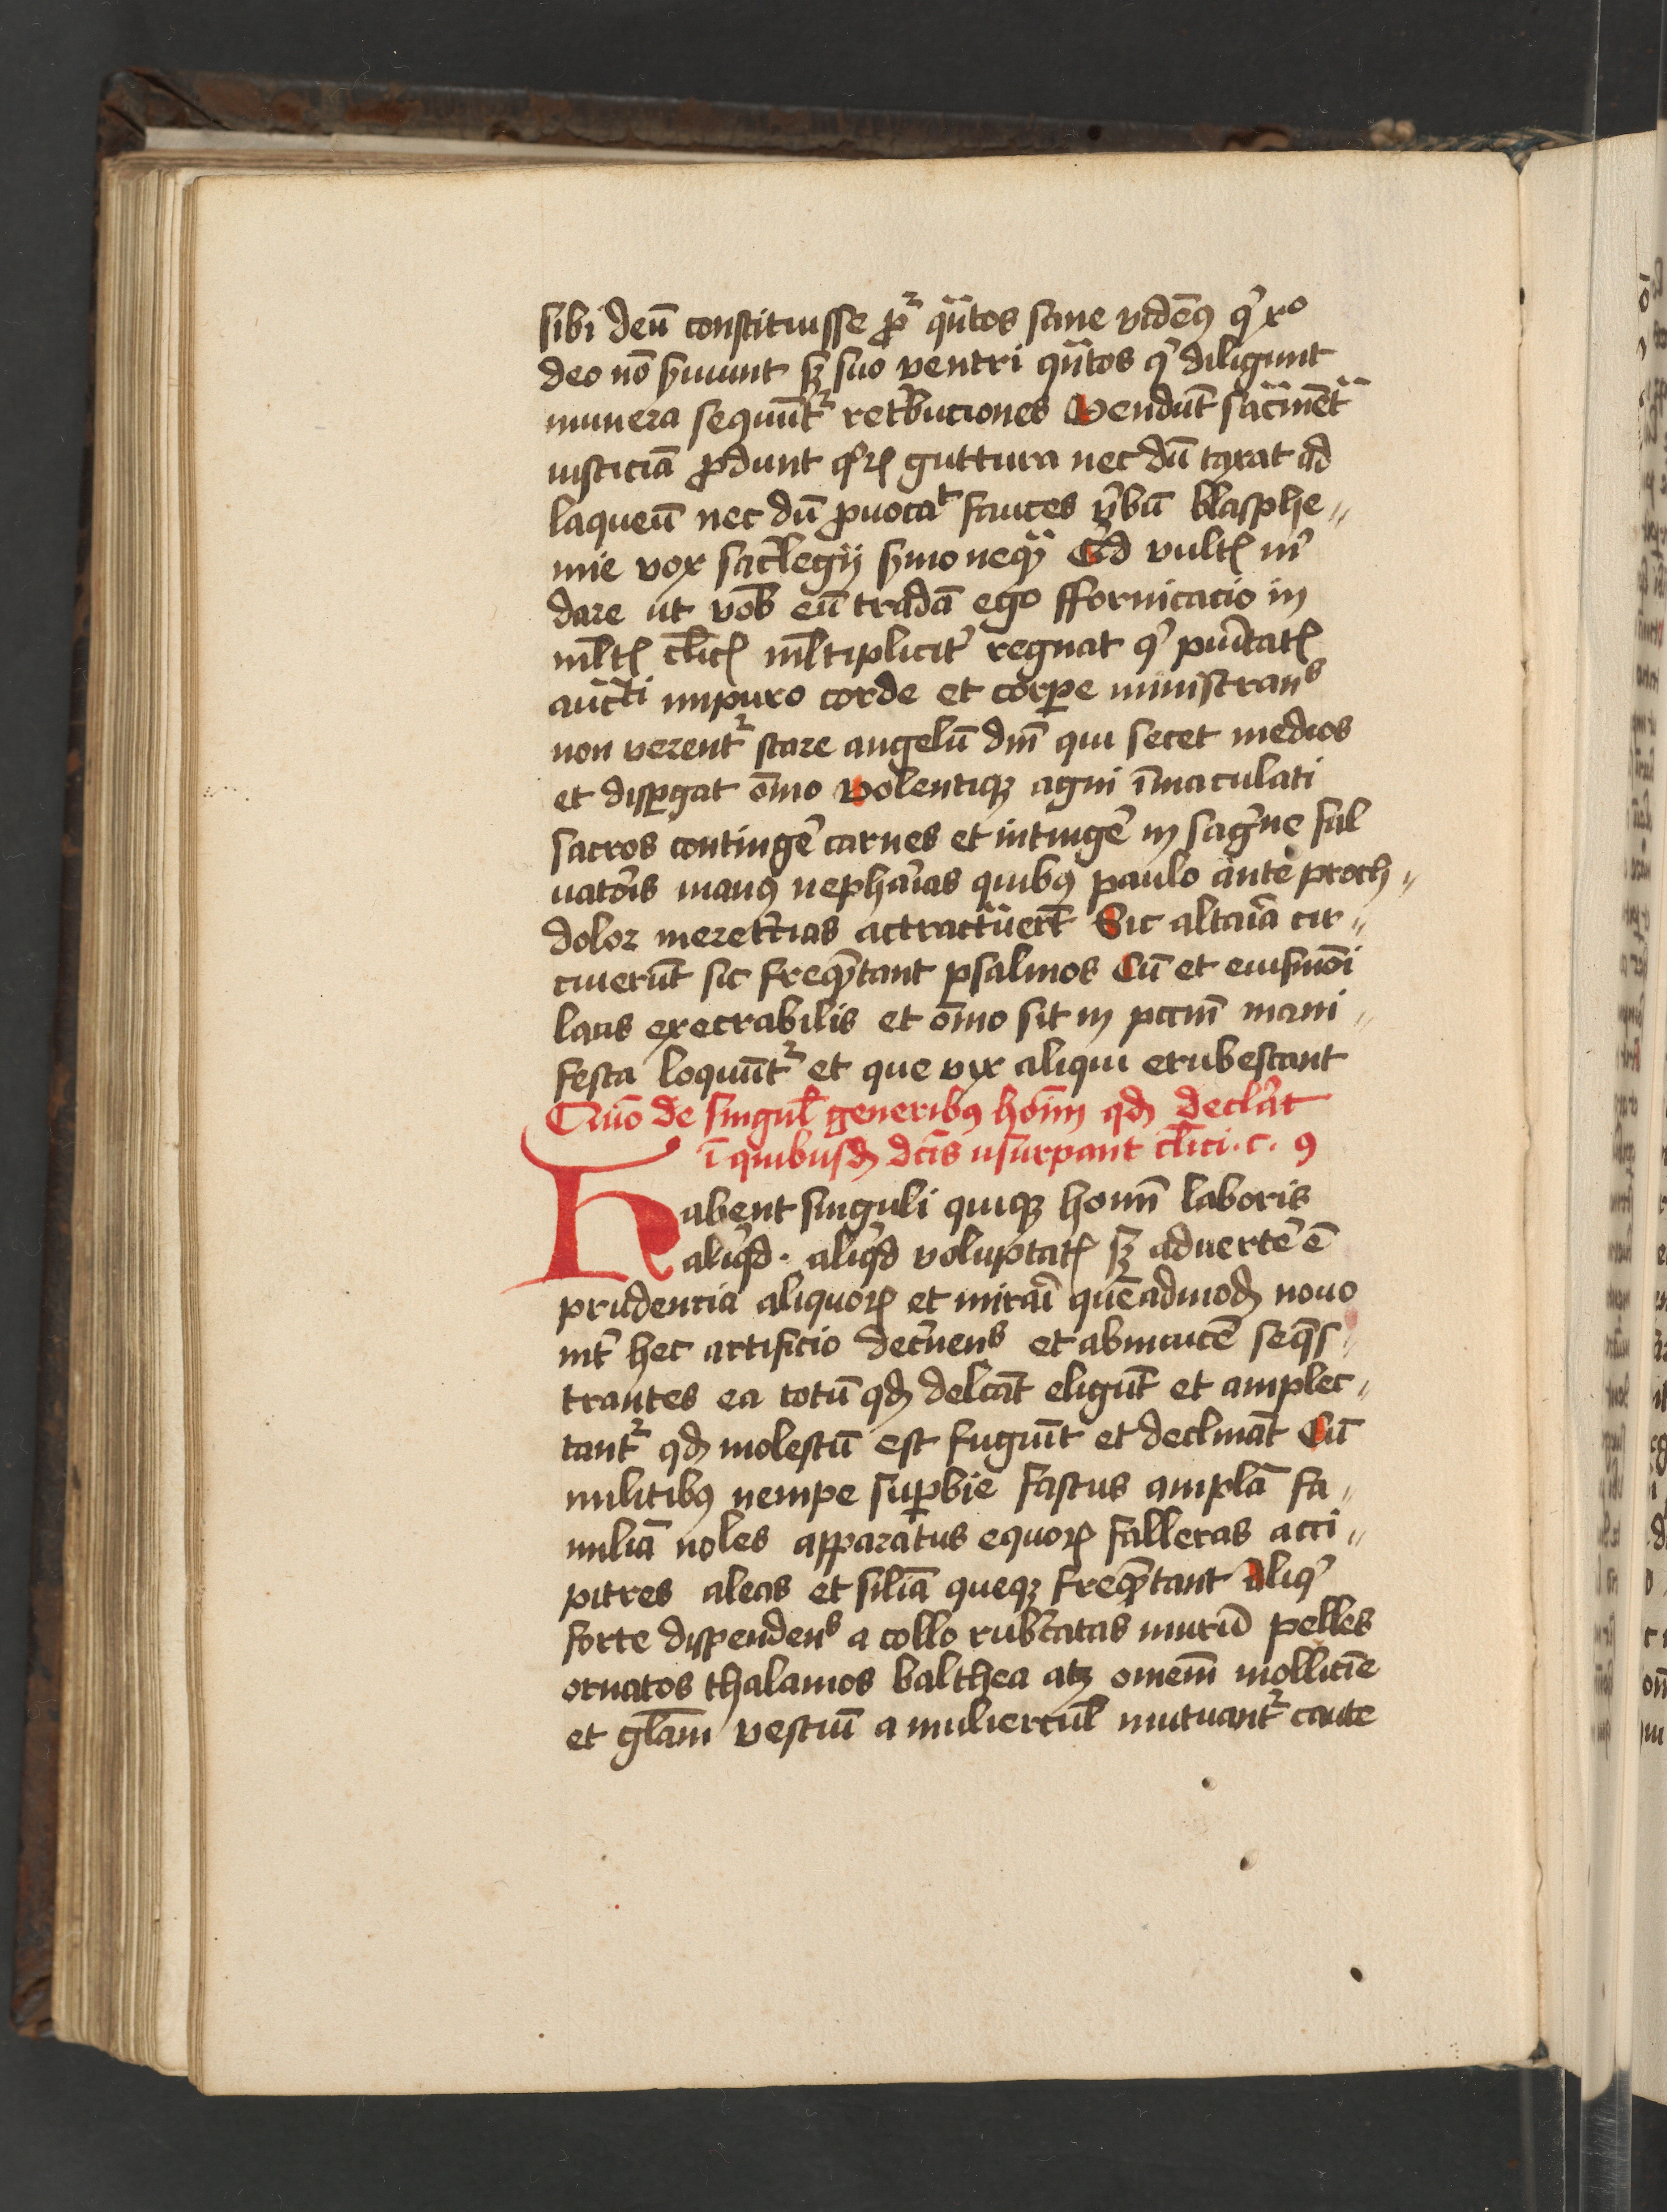 sibi deū constituisse ꝓᷣ qͣntos sane videmꝰ qͥ xͦ
deo nō ẜuiunt sꝫ suo ventri qͣntos qͥ diligunt
munera sequūtᷣ retͥbuciones Vendūt sacͣmētͣ
iusticiā ꝓdunt qͦꝝ guttura nec dū taxat ad
laqueū nec dū ꝓuocat fauces v̓bū blasphe〃
mie vox sacͥlegij ẜmo neqͣꝫ Qͥd vultꝭ mͥ
dare ut vob̄ eū tradā ego fforničacio in
ml̄tꝭ cl̄icꝭ ml̄tiplicit̓ regnat qͥ puͥtatꝭ
auctͥ impuro corde et corꝑe ministranˢ
non verentᷣ stare angelū dn̄i qui secet medios
et disꝑgat oīno Volentiqꝫ agni īmaculati
sacros continge̓ carnes et intinge̓ in sagͥne sal
uatōis manꝰ nephaͥas quibꝰ paulo ante proch〃
dolor meretͥcias actractauerūt Sic altaͥa cir〃
cuierūt sic freqͣntant psalmos Cū et eiusmōi
laus execrabilis et oīno sit in pctīn mani〃
festa loquūtᷣ et que vix aliqui erubescant
Quō de singul̄ generibꝰ hoīm qd̄ declͣat
ī quibusd̄ dcīs usurpant cl̄ici · c · 9
Habent singuli quiqꝫ homī laboris
aliqͥd · aliqͥd voluptatꝭ sꝫ aduerte̓ ē
prudencia aliquoꝝ et miraͥ quēadmod̄ nouo
int̓ hec artificio dec̓nenˢ et abinuicē seqͣs〃
trantes ea totū qd̄ delcāt eligūt et amplec〃
tantᷣ qd̄ molestū est fugiūt et declināt Cū
militibꝰ nempe suꝑbie fastus amplā fa〃
miliā noles apparatus equoꝝ falleras acci〃
pitres aleas et siliā queqꝫ freqͣntant aliqͥ
forte dispendenˢ a collo rubͥcatas muriū pelles
ornatos thalamos balthea atꝫ omem̄ mollicie
et gl̄am vestiū a muliercul̄ mutuantᷣ caute